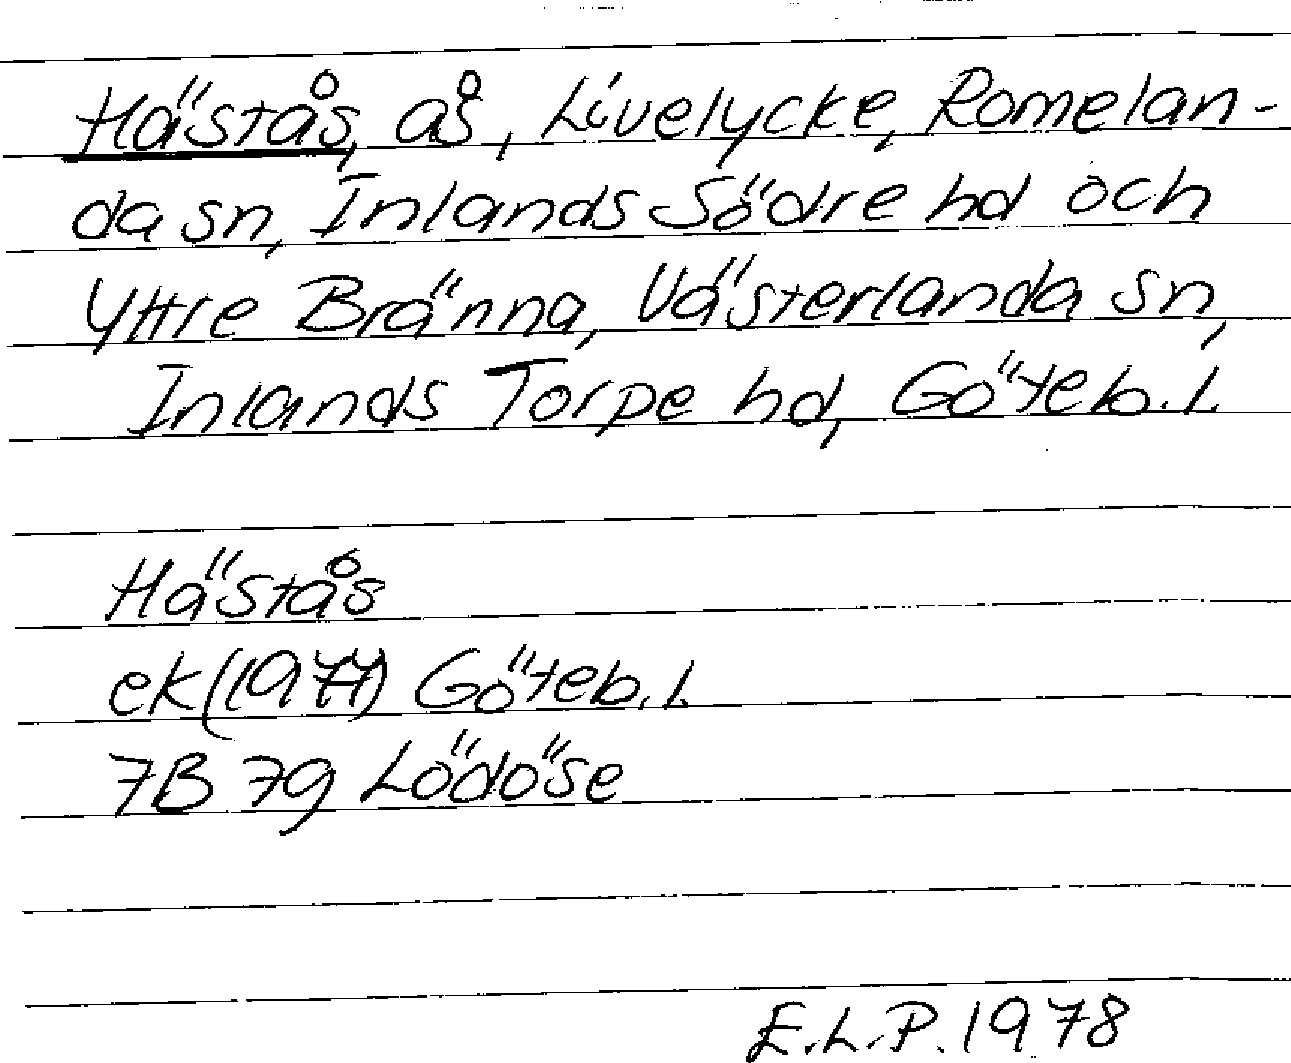 Hästås, ås, Livelycke, Romelan-
da sn, Inlands Södre hd och
Yttre Bränna, Västerlanda sn,
Inlands Torpe hd, Göteb.l.
Hästås
ek(1977) Göteb.l.
7B 7g Lödöse
E.L.P. 1978